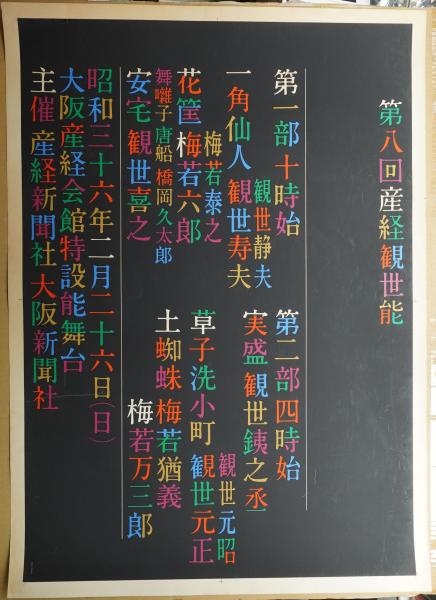 第八回産経観世能
第一部十時始
一角仙人 観世寿夫
観世静夫
梅若泰之
花筐 梅若六郎
舞囃子 唐船 橋岡久太郎
安宅 観世喜之
第二部四時始
実盛 観世銕之丞
草子洗小町 観世元正
観世元昭
土蜘蛛 梅若猶義
梅若万三郎
昭和三十六年二月二十六日(日)
大阪産経会館特設能舞台
主催 産経新聞社 大阪新聞社